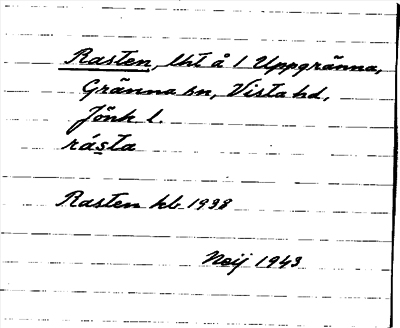 Rasten, lht å 1 Uppgränna,
Gränna sn, Vista hd,
Jönk l.
rásta
Rasten kb 1938
Neij 1943